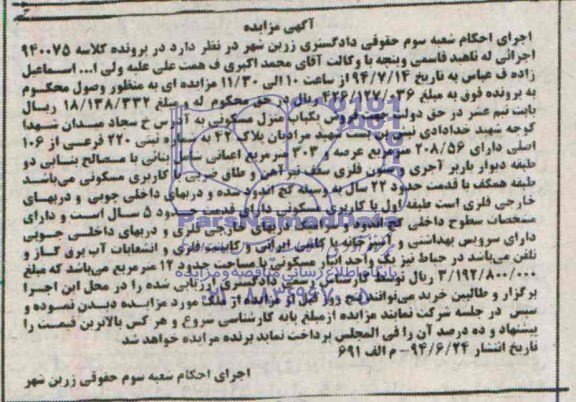 آگهی مزایده
اجرای احکام شعبه سوم حقوقی دادگستری زرین شهر در نظر دارد در پرونده کلاسه ۹۴۰۰۷۵
اجرائی له ناهید قاسمی وینچه با وکالت آقای محمد اکبری ف همت علی علیه ولی ا... اسماعیل
زاده ف عباس به تاریخ ۹۴/۷/۱۴ از ساعت ۱۰ الی ۱۱/۳۰ مزایده ای به منظور وصول محکوم
به پرونده فوق به مبلغ ۴۲۶/۱۲۷/۰۳۶ ریال در حق محکوم له و مبلغ ۱۸/۱۳۸/۳۳۲ ریال
بابت نیم عشر در حق دولت جهت فروش یکباب منزل مسکونی به آدرس خ سجاد میدان شهدا
کوچه شهید خدادادی نبش بن بست شهید مرادیان پلاک ۴۲ به شماره ثبتی ۲۲۰ فرعی از ۱۰۶
اصلی دارای ۲۰۸/۵۶ مترمربع عرصه و ۳۰۳ مترمربع اعیانی شامل بنائی با مصالح بنایی دو
طبقه دیوار باربر آجری و ستون فلزی سقف تیرآهن و طاق ضربی با کاربری مسکونی می‌باشد
طبقه همکف با قدمت حدود ۲۲ سال به وسیله گچ اندود شده و دربهای داخلی چوبی و دربهای
خارجی فلزی است طبقه اول با کاربری مسکونی دارای قدمت حدود ۵ سال است و دارای
مشخصات سطوح داخلی گچ اندود و دربهای خارجی فلزی و دربهای داخلی چوبی
دارای سرویس بهداشتی و آشپزخانه با کاشی ایرانی و کابینت فلزی و انشعابات آب برق گاز و
تلفن می‌باشد در حیاط نیز یک واحد اتاق مسکونی با مساحت حدود ۱۲ مترمربع می‌باشد که مبلغ
۳/۱۹۲/۸۰۰/۰۰۰ ریال توسط کارشناس رسمی دادگستری ارزیابی شده را در محل این اجرا
برگزار و طالبین خرید می‌توانند پنج روز قبل از مزایده از ملک مورد مزایده دیدن نموده و
سپس در جلسه شرکت نمایند مزایده از مبلغ پایه کارشناسی شروع و هر کس بالاترین قیمت را
پیشنهاد و ده درصد آن را فی المجلس پرداخت نماید برنده مزایده خواهد شد
تاریخ انتشار ۹۴/۶/۲۴ - م الف ۶۹۱
اجرای احکام شعبه سوم حقوقی زرین شهر
ParsNamadData
پایگاه اطلاع رسانی مناقصه و مزایده